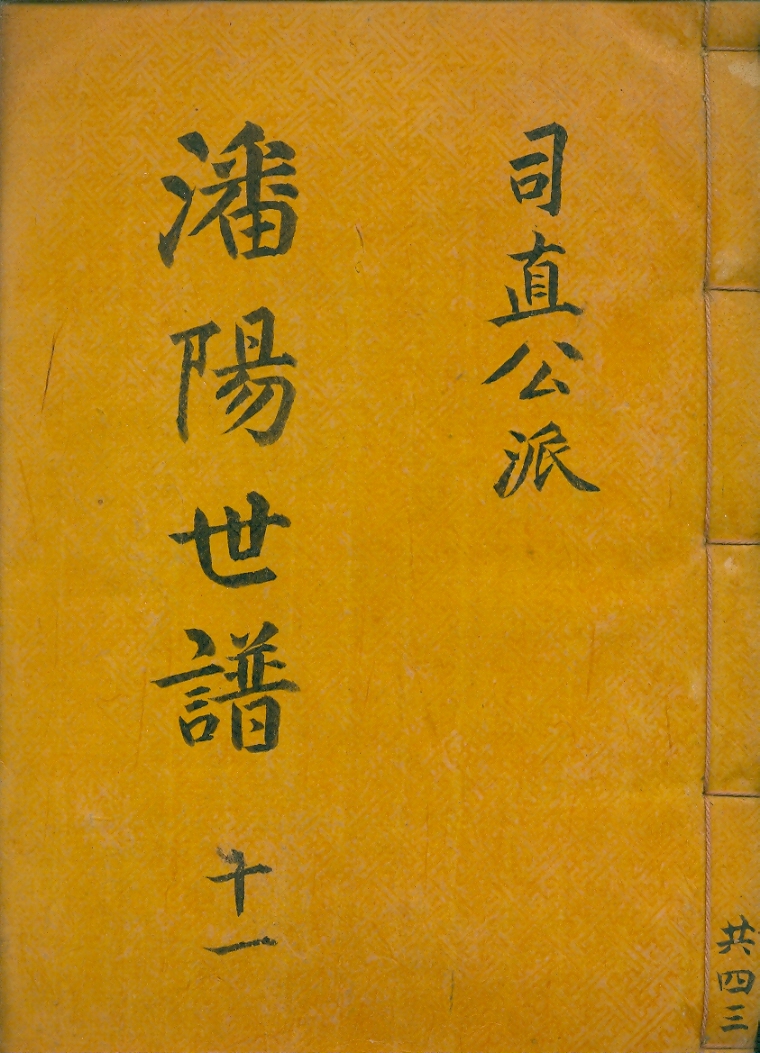 潘陽世譜 午一
司直公派
共四三